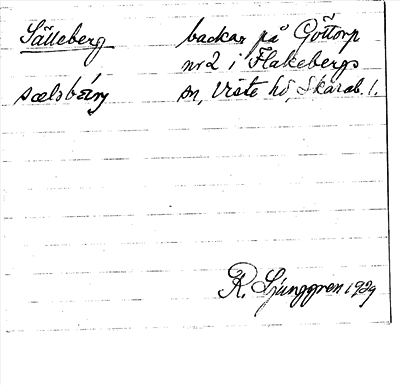 Sälleberg backar på Göttorp
nr 2 i Flakebergs
sn, Viste hd, Skarab. l.
R. Ljunggren 1929